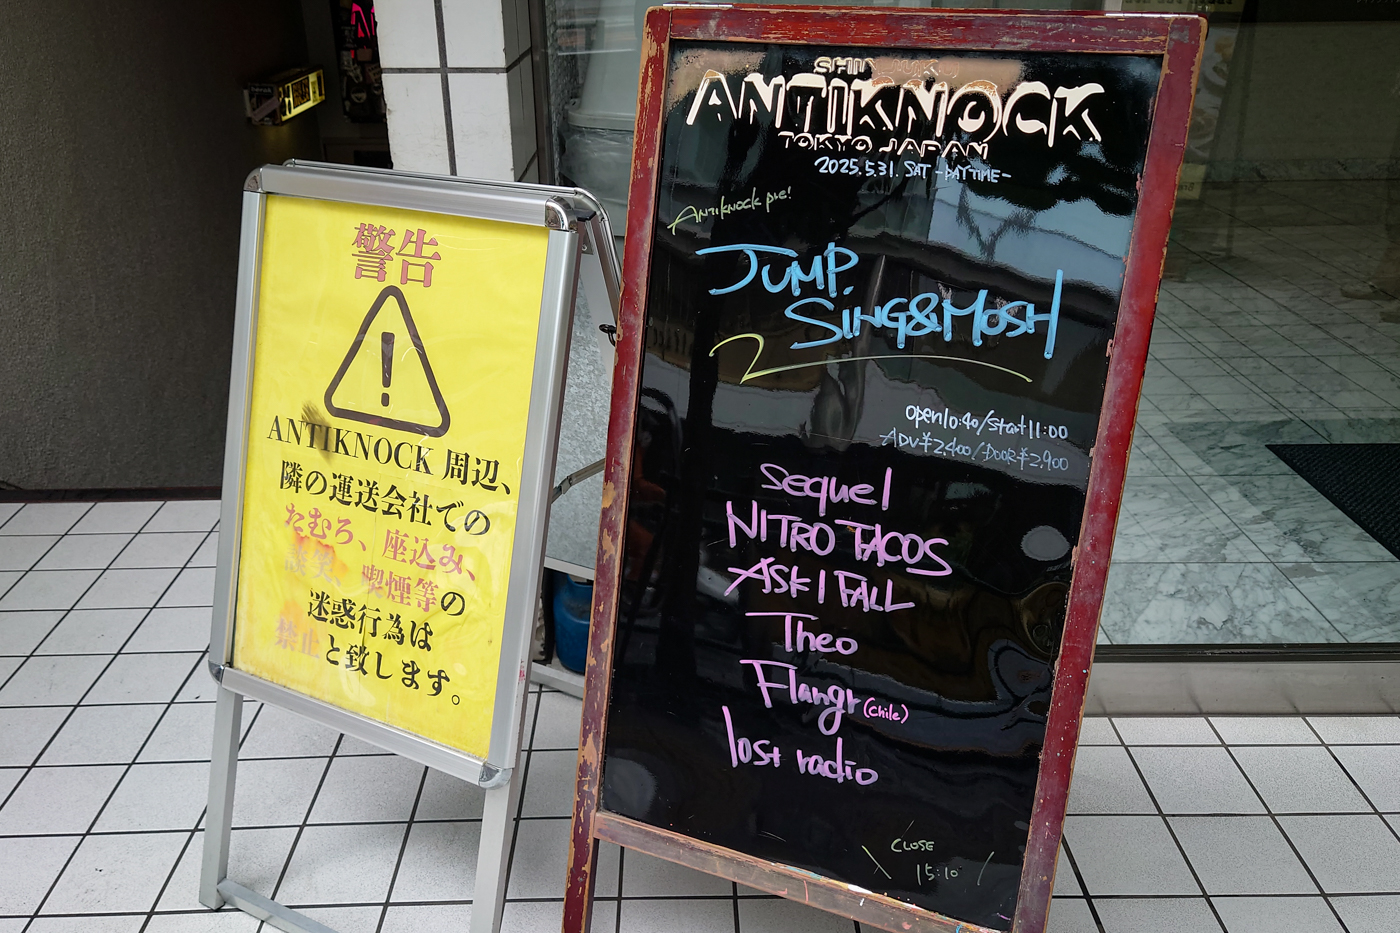 警告
ANTIKNOCK 周辺、
隣の運送会社での
たむろ、座込み、
談笑、喫煙等の
迷惑行為は
禁止と致します。
SHINJUKU
ANTIKNOCK
TOKYO JAPAN
2025.5.31. SAT -DAYTIME-
ANTIKNOCK pre!
JUMP.
SING&MOSH
2
open10:40/start11:00
ADV¥2,400/DOOR¥2,900
sequel
NITRO TACOS
ASK I FALL
Theo
Flangr (chile)
lost radio
CLOSE
15:10